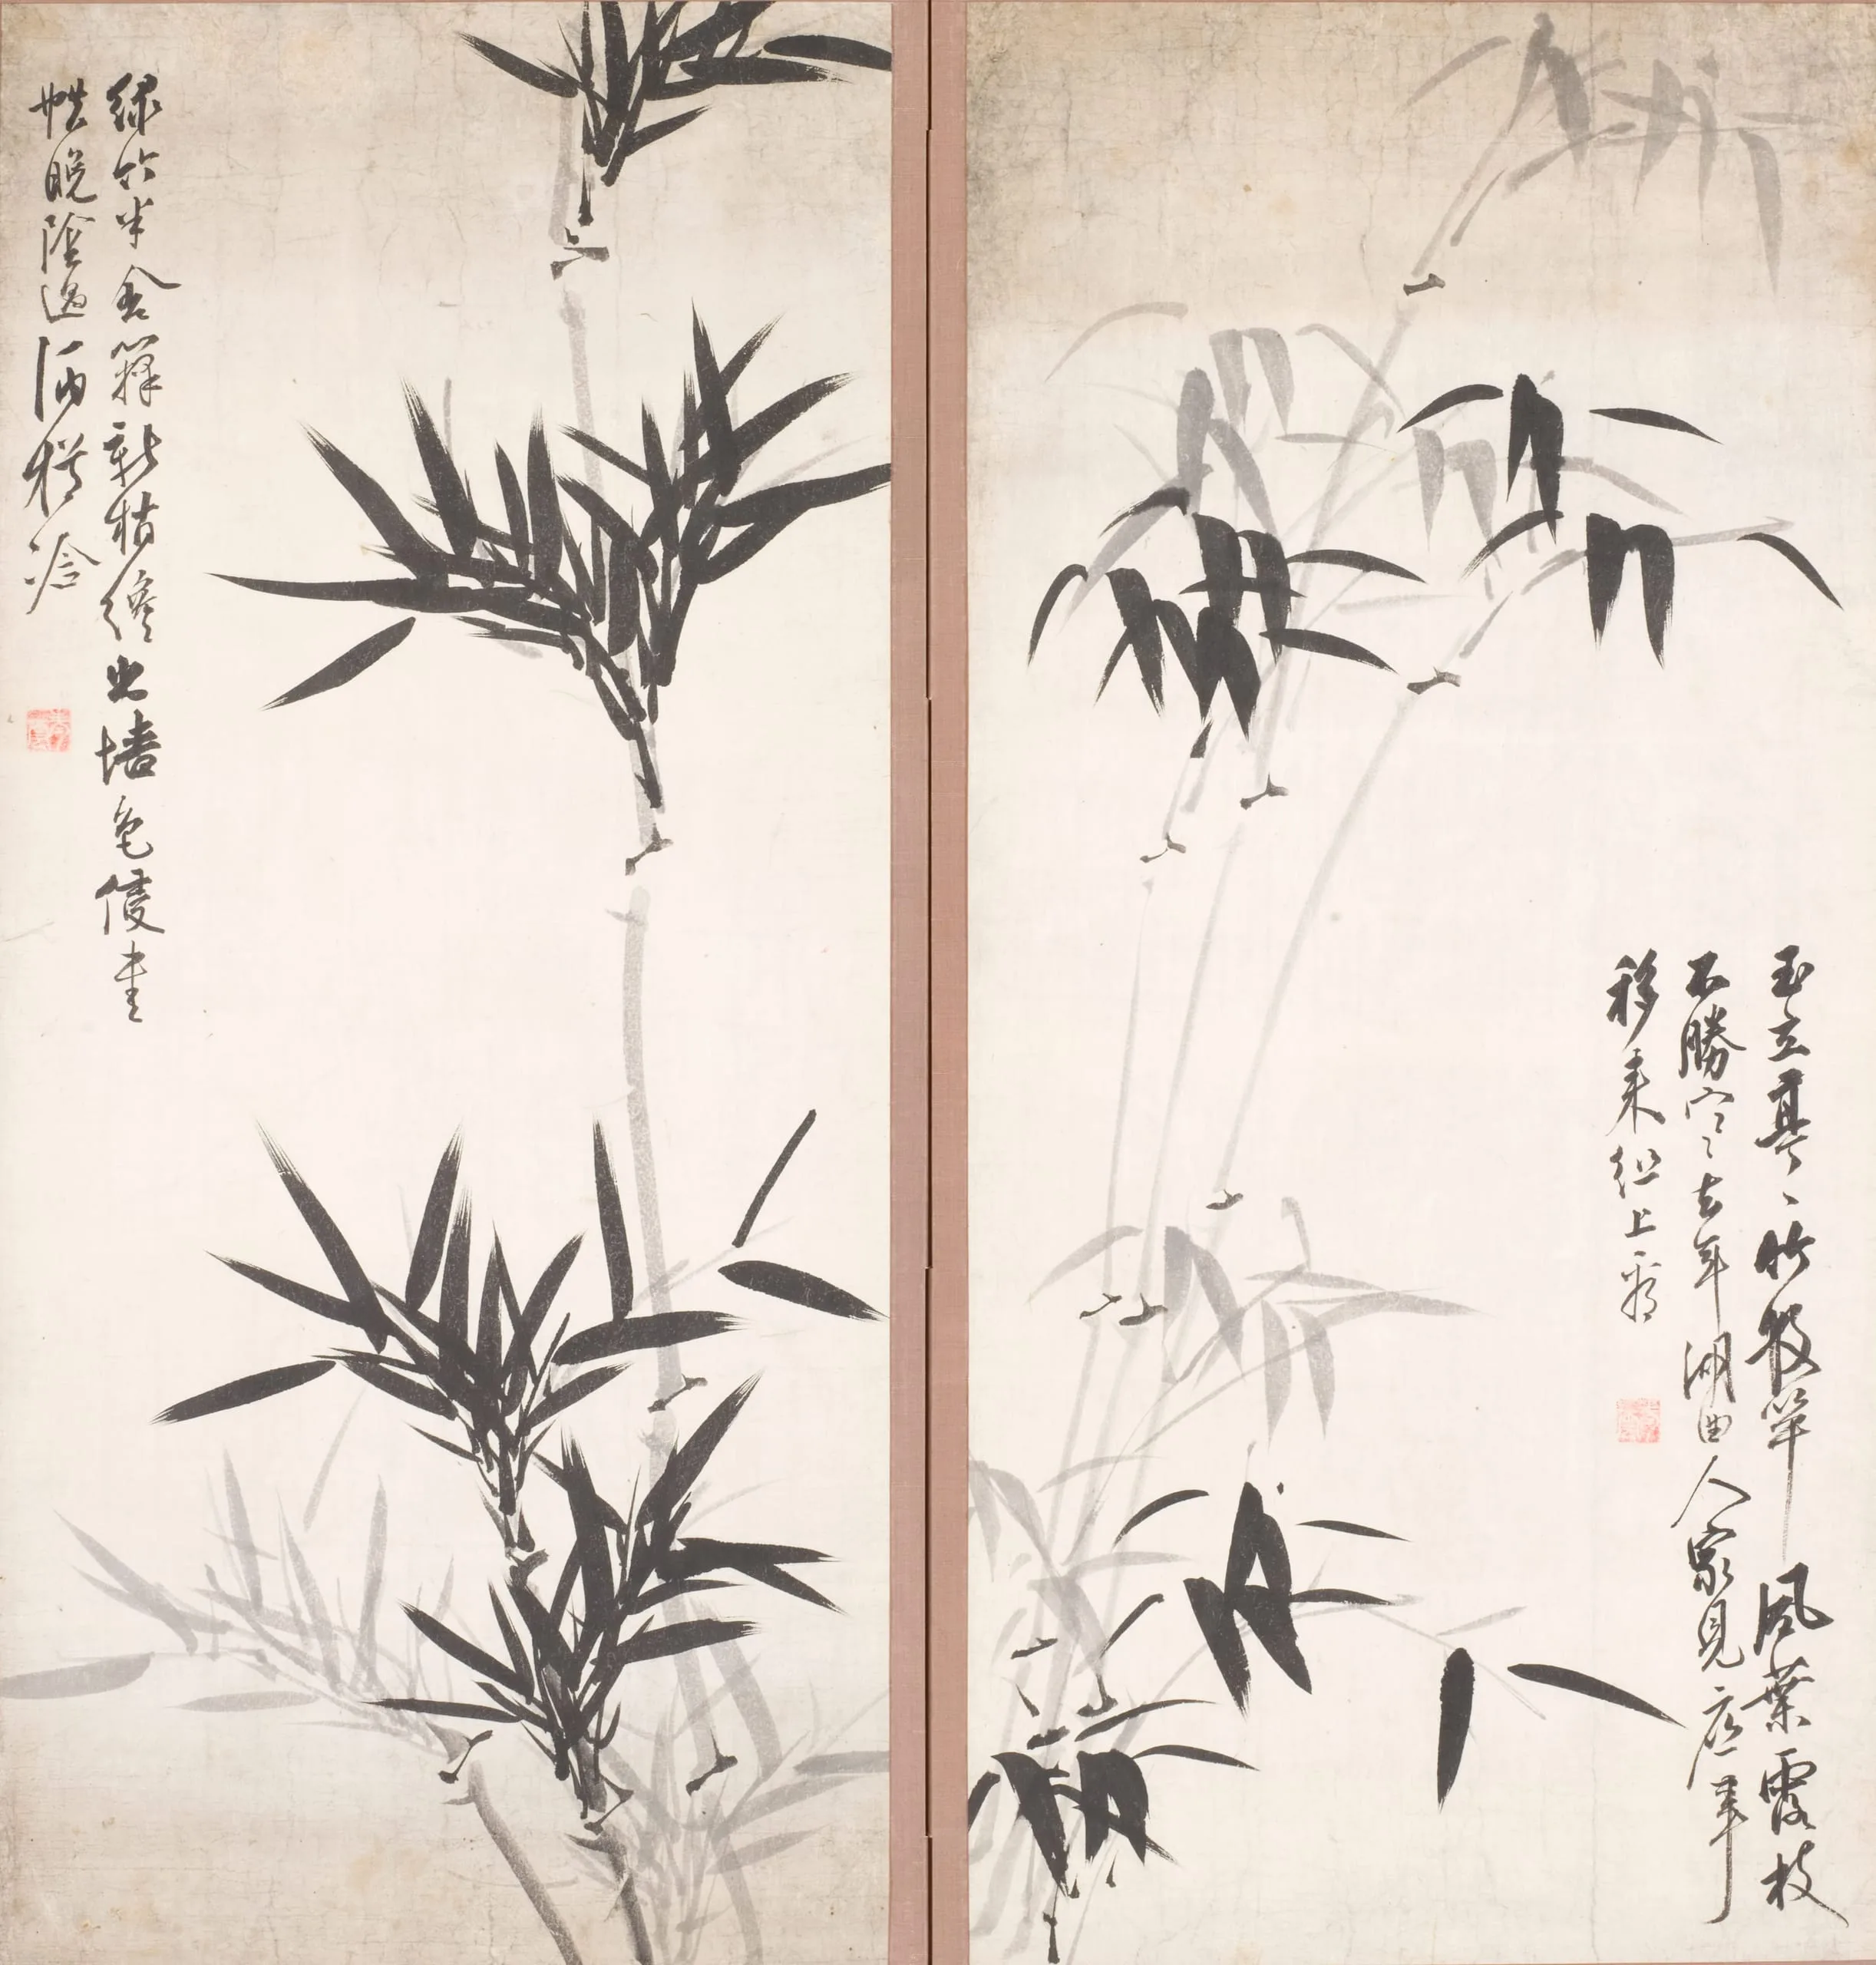 玉立亭〻竹數竿風葉露枝
不勝寒去年湖曲人家見應筆
移來紙上看
綠竹半含籜新梢纔出墻色侵書
帙晚陰過酒樽冷